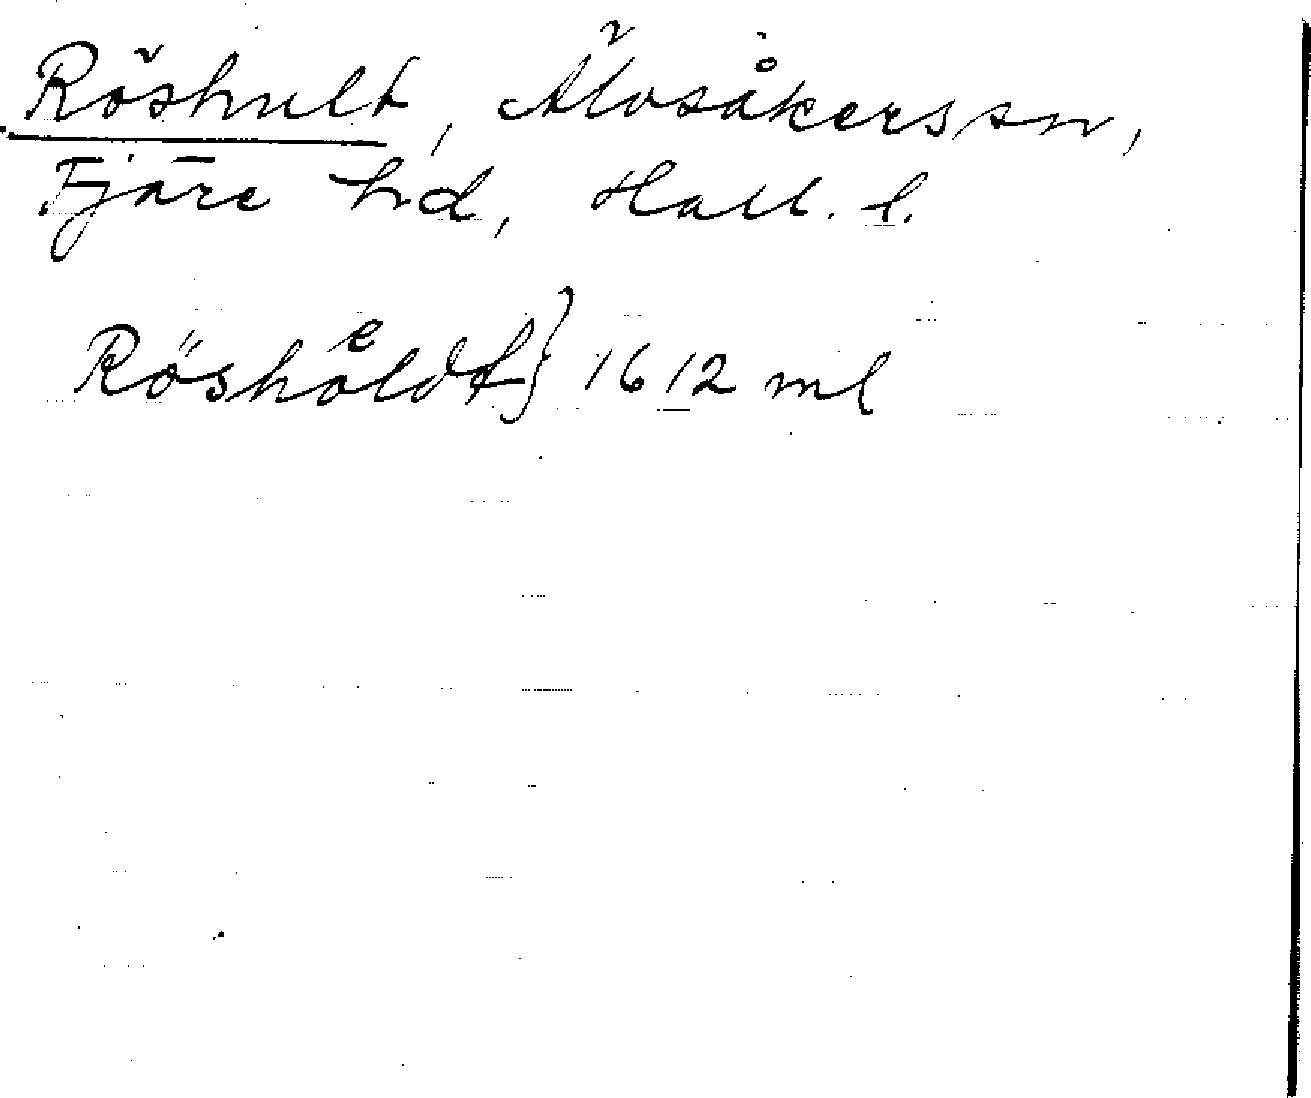 Röshult, Älvsåkers sn,
Fjäre hd, Hall. l.
Röshoͤldt} 1612 ml